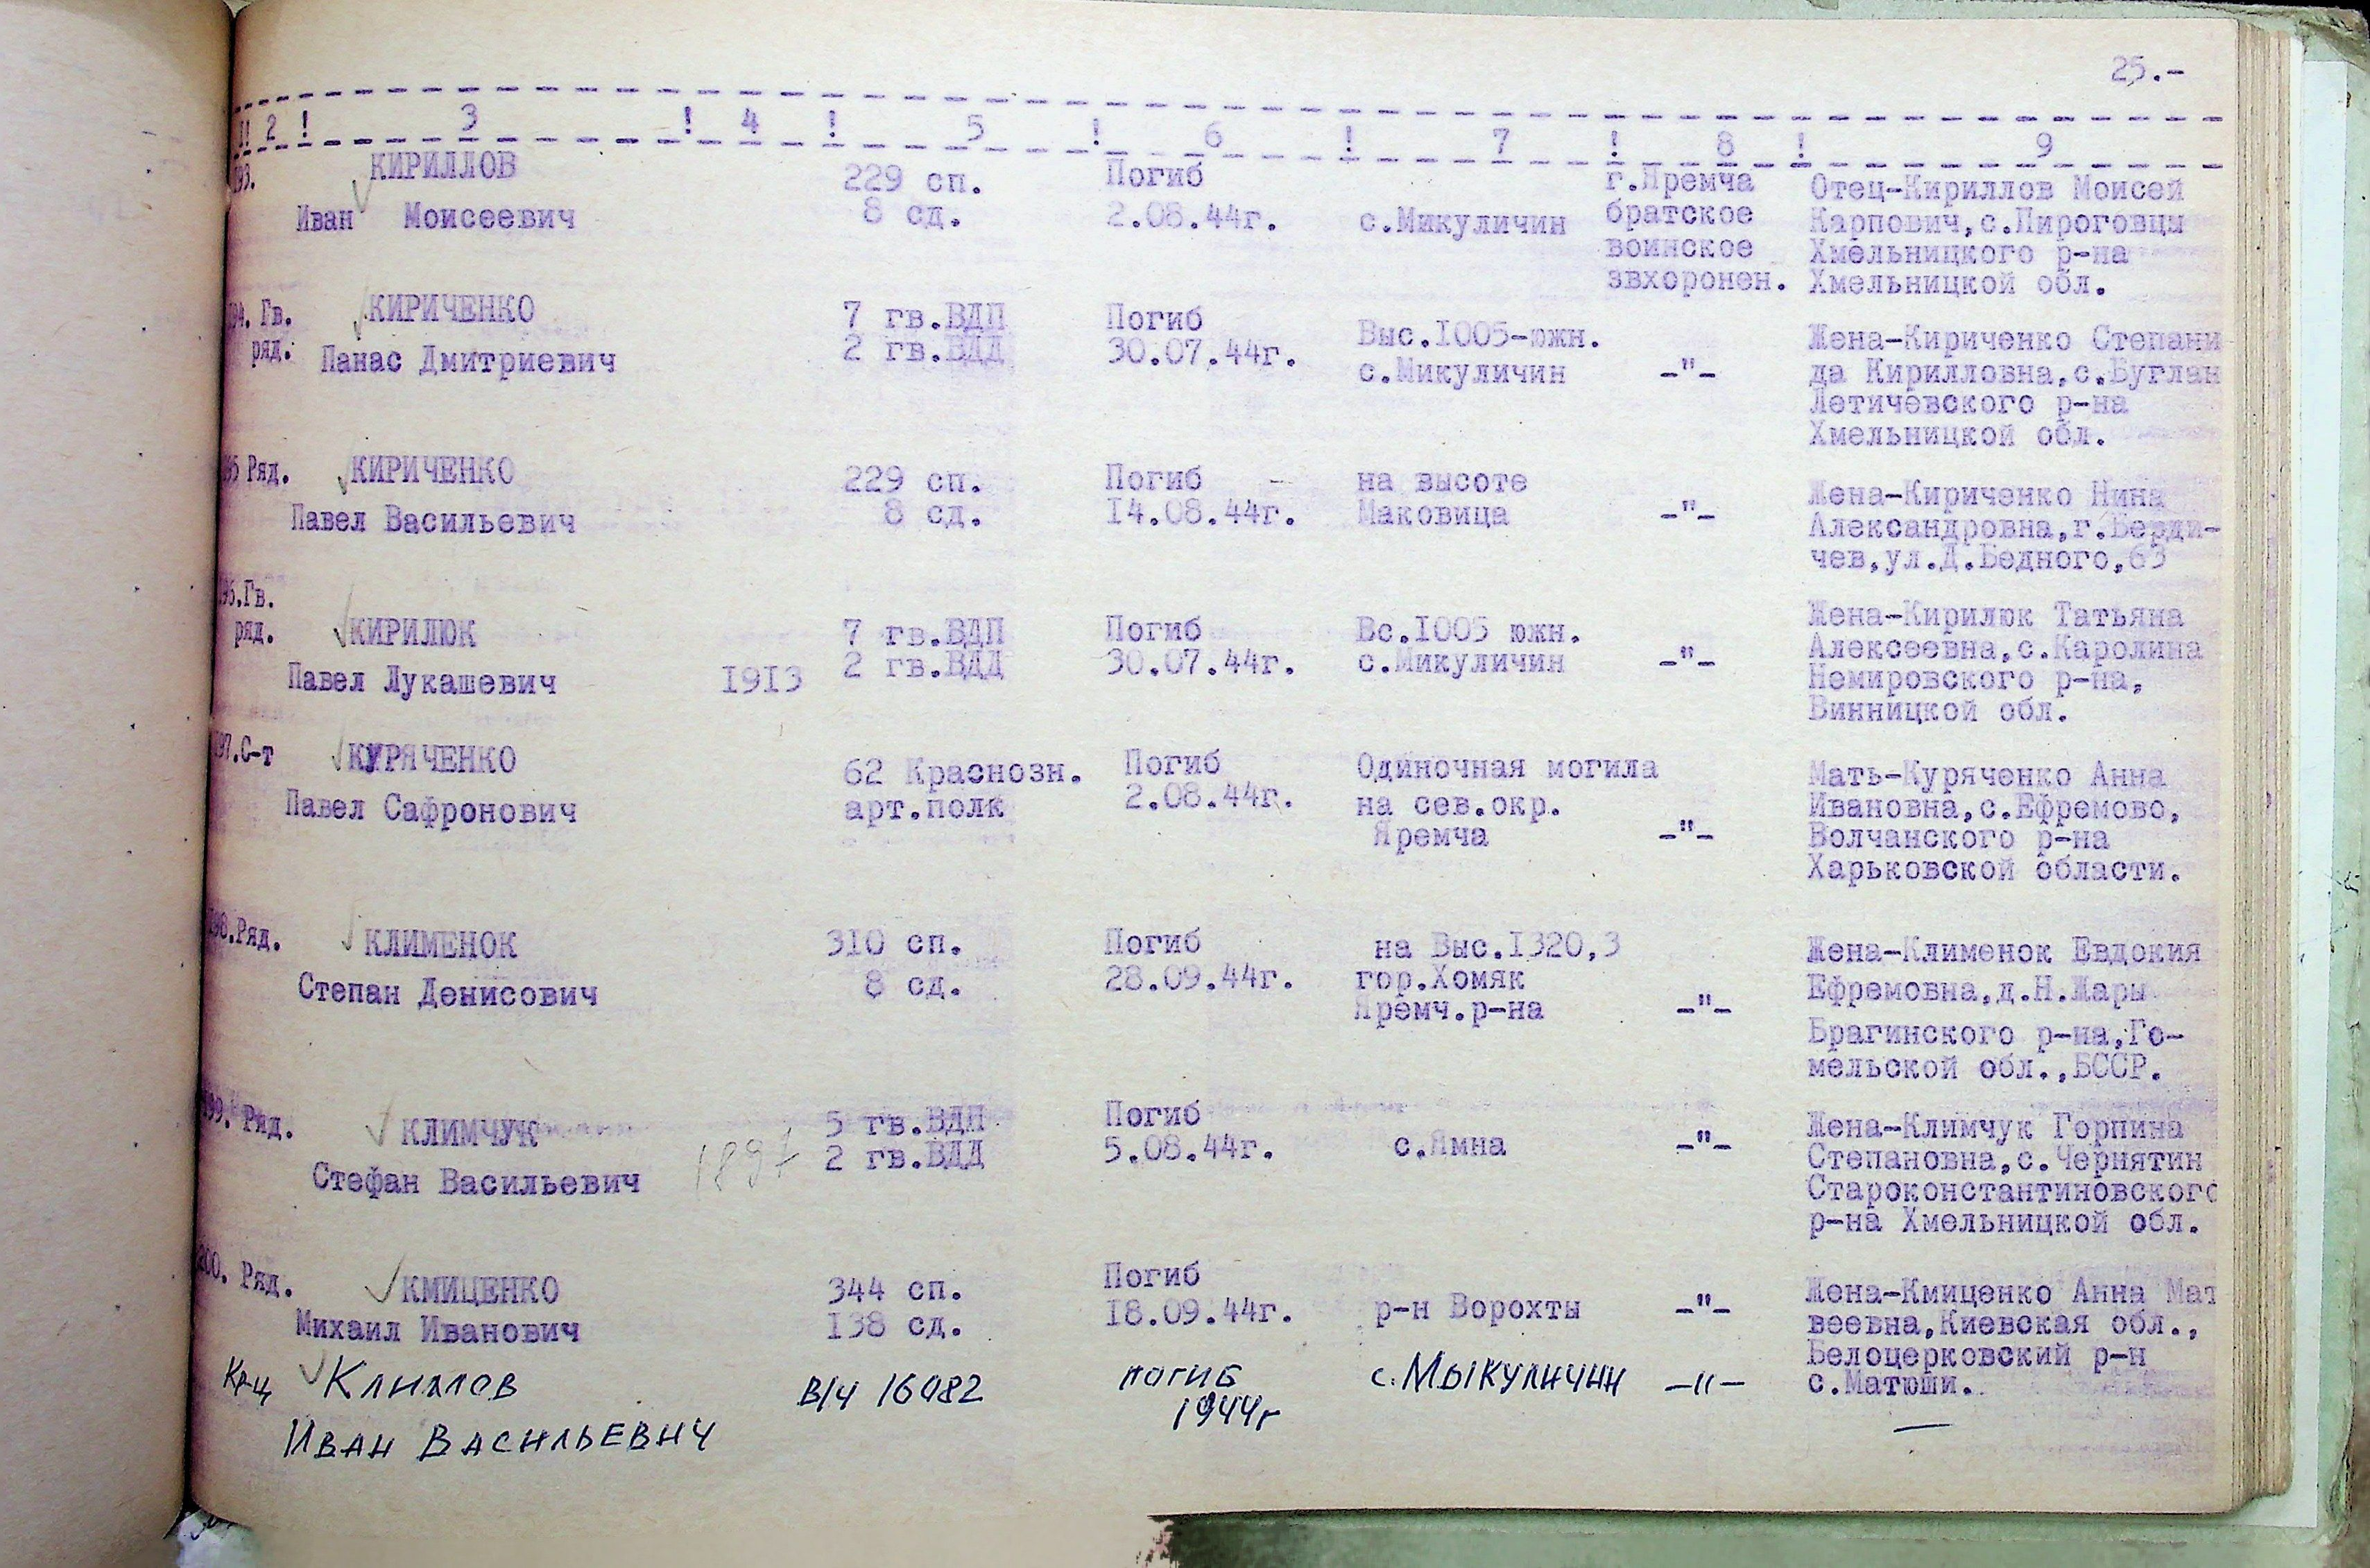 25.-
1! 2 ! 3 ! 4 ! 5 ! 6 ! 7 ! 8 ! 9
193. КИРИЛЛОВ 229 сп. Погиб г.Яремча Отец-Кириллов Моисей
Иван Моисеевич 8 сд. 2.08.44г. с.Микуличин братское Карпович,с.Пироговцы
воинское Хмельницкого р-на
звхоронен. Хмельницкой обл.
194. Гв. КИРИЧЕНКО 7 гв.ВДП Погиб Выс.1005-южн. Жена-Кириченко Степани
ряд. Панас Дмитриевич 2 гв.ВДД 30.07.44г. с.Микуличин -"- да Кирилловна,с.Буглан
Летичевского р-на
Хмельницкой обл.
195 Ряд. КИРИЧЕНКО 229 сп. Погиб на высоте Жена-Кириченко Нина
Павел Васильевич 8 сд. 14.08.44г. Маковица -"- Александровна,г.Берди-
чев,ул.Д.Бедного,63
196.Гв. Жена-Кирилюк Татьяна
ряд. КИРИЛЮК 7 гв.ВДП Погиб Вс.1005 южн. Алексеевна,с.Каролина
Павел Лукашевич 1913 2 гв.ВДД 30.07.44г. с.Микуличин -"- Немировского р-на,
Винницкой обл.
197.С-т КУРЯЧЕНКО 62 Краснозн. Погиб Одиночная могила Мать-Куряченко Анна
Павел Сафронович арт.полк 2.08.44г. на сев.окр. Ивановна,с.Ефремово,
Яремча -"- Волчанского р-на
Харьковской области.
198.Ряд. КЛИМЕНОК 310 сп. Погиб на Выс.1320,3 Жена-Клименок Евдокия
Степан Денисович 8 сд. 28.09.44г. гор.Хомяк Ефремовна,д.Н.Жары
Яремч.р-на -"- Брагинского р-на,Го-
мельской обл.,БССР.
199. Ряд. КЛИМЧУК 5 гв.ВДП Погиб Жена-Климчук Горпина
Стефан Васильевич 1897 2 гв.ВДД 5.08.44г. с.Ямна -"- Степановна,с.Чернятин
Староконстантиновского
р-на Хмельницкой обл.
200. Ряд. КМИЦЕНКО 344 сп. Погиб Жена-Кмиценко Анна Мат
Михаил Иванович 138 сд. 18.09.44г. р-н Ворохты -"- веевна,Киевская обл.,
Белоцерковский р-н
с.Матюши.
Кр-ц В/ч 16082 погиб с.Мыкуличин -"- —
Иван Васильевич 1944г